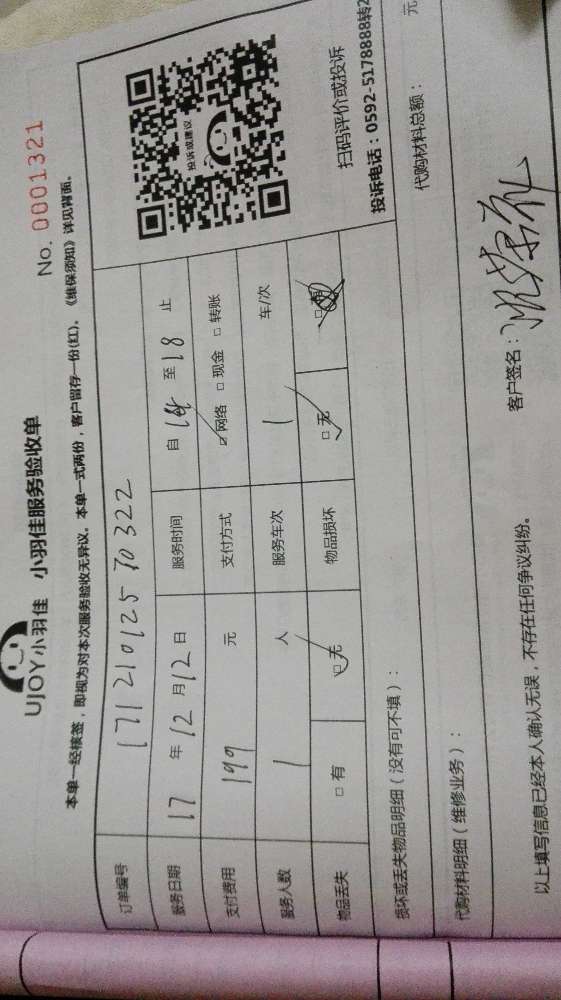 UJOY小羽佳 小羽佳服务验收单
No. 0001321
本单一经核签，即视为对本次服务验收无异议。本单一式两份，客户留存一份(红)。《维保须知》详见背面。
订单编号 17121012570322
服务日期 17年12月12日 服务时间 自14至18止
支付费用 199元 支付方式 ☑网络 □现金 □转账
服务人数 1人 服务车次 1车/次
物品丢失 □有 ☑无 物品损坏 ☑无 □有
投诉或建议
扫码评价或投诉
投诉电话：0592-5178888转2
损坏或丢失物品明细（没有可不填）：
代购材料明细（维修业务）： 代购材料总额： 元
以上填写信息已经本人确认无误，不存在任何争议纠纷。 客户签名：